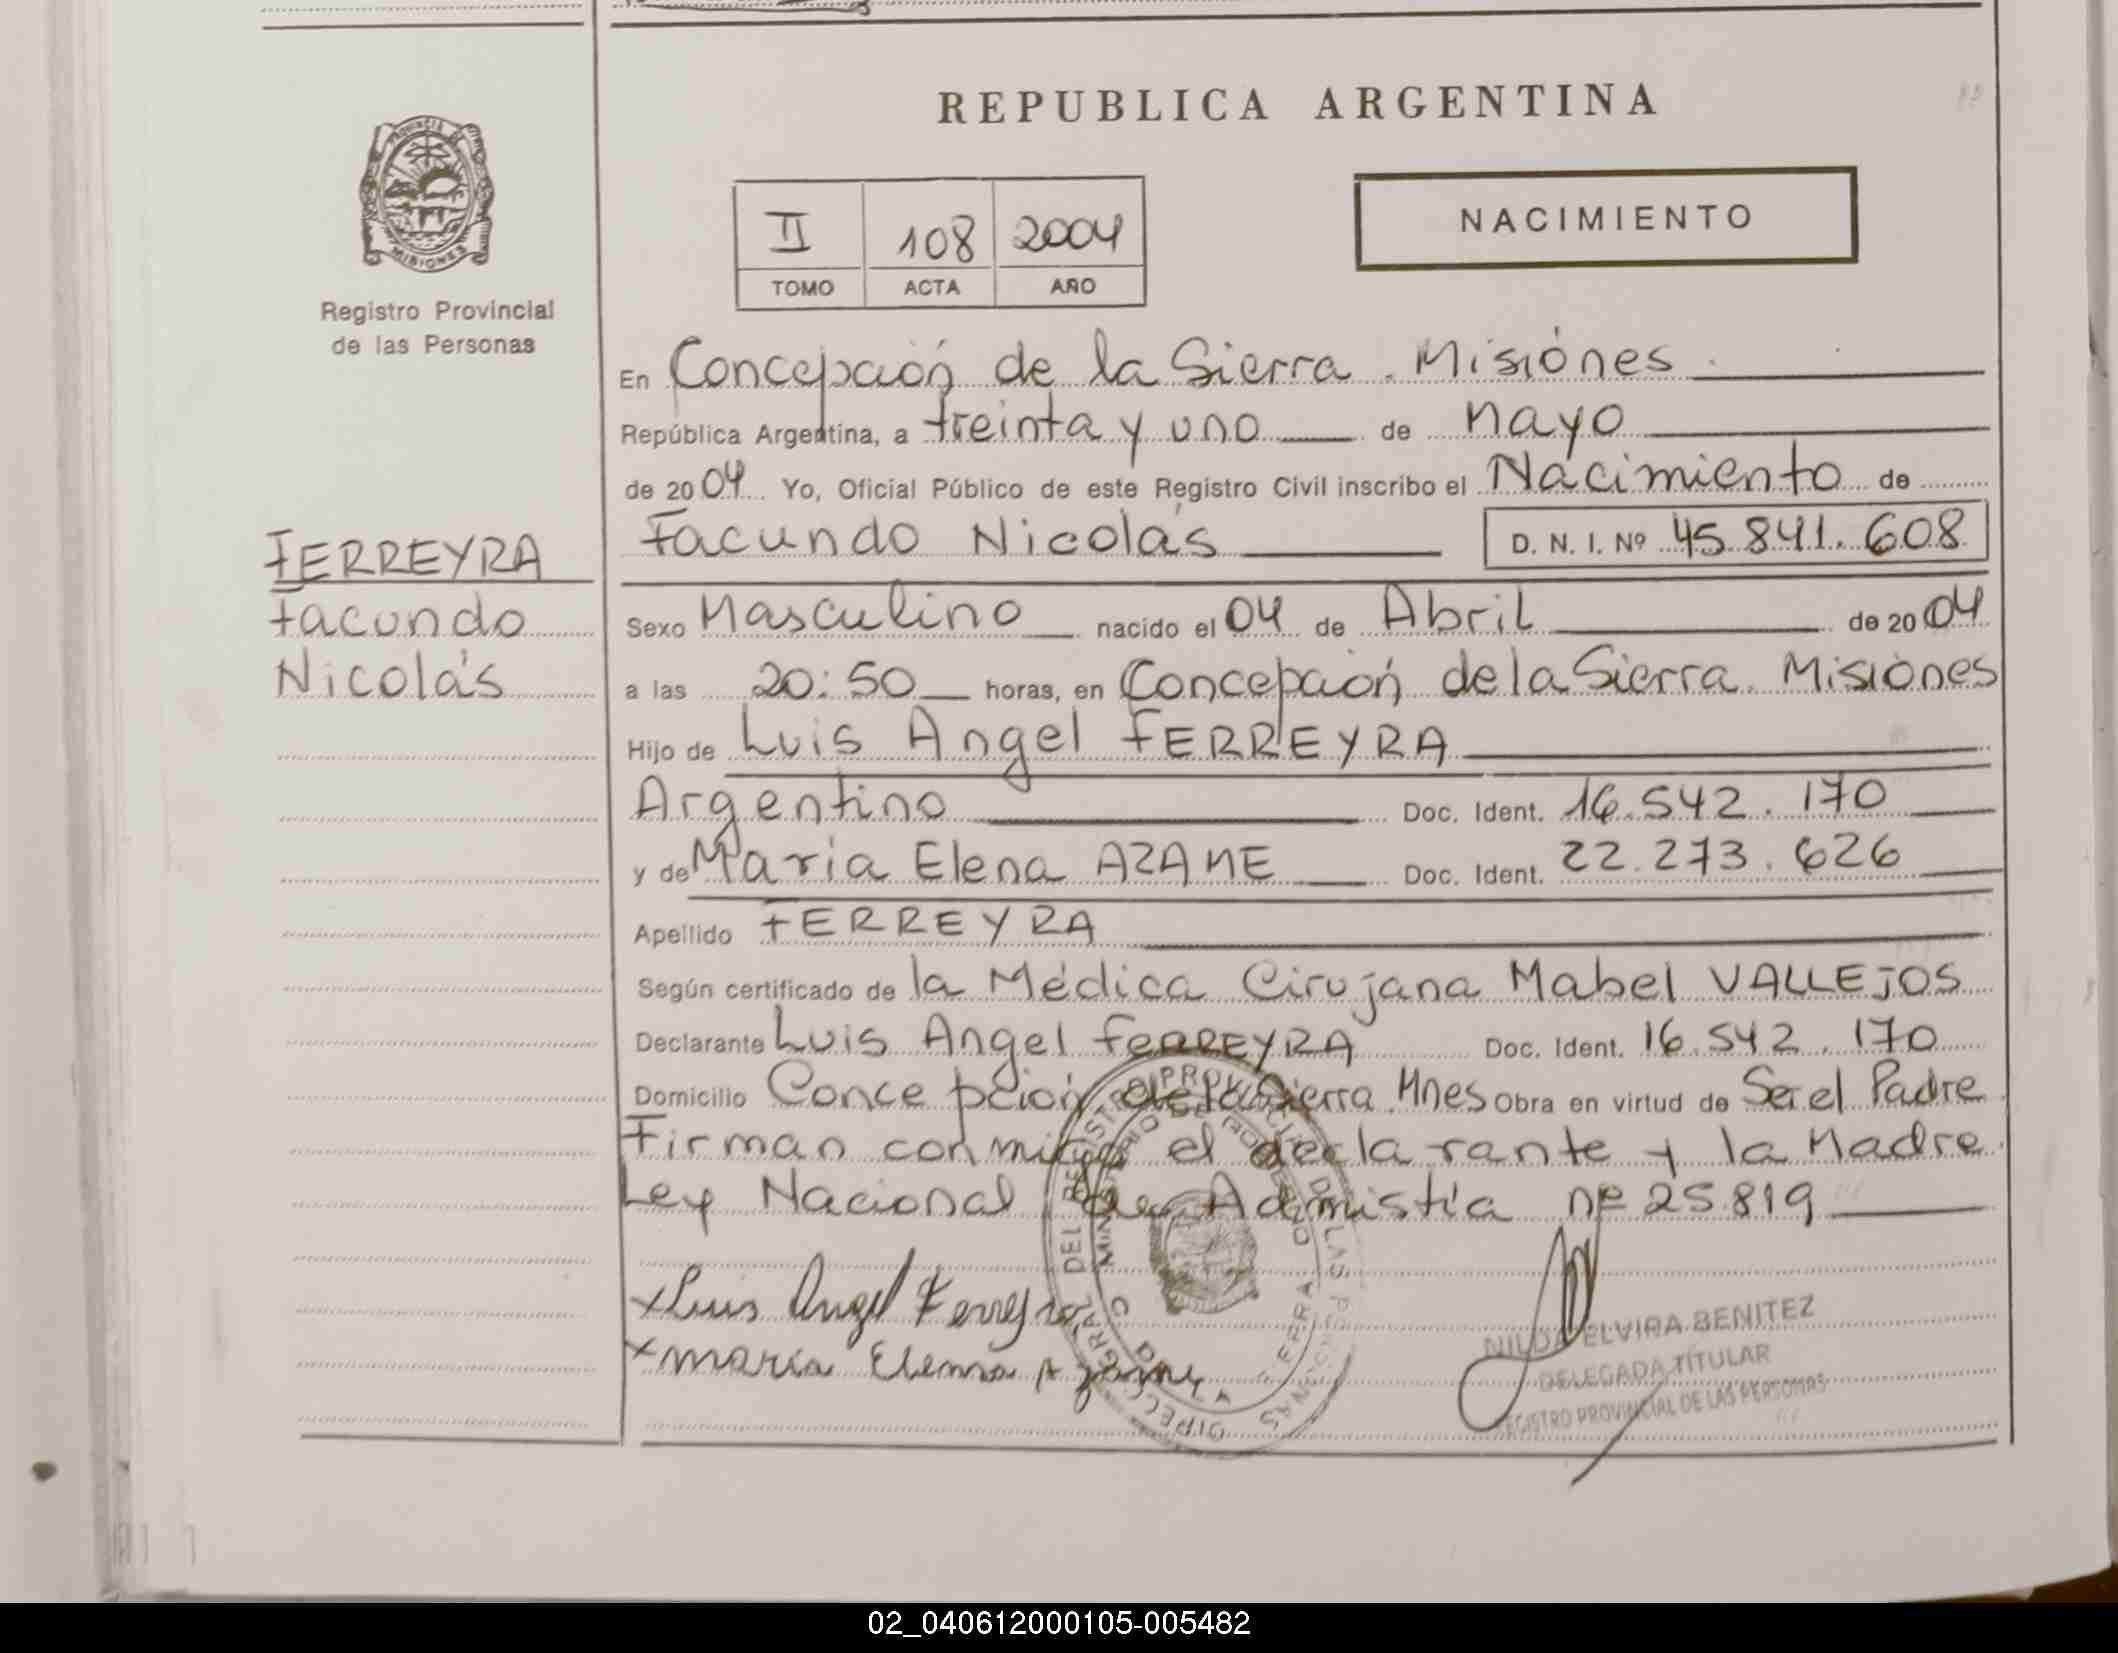 REPUBLICA ARGENTINA
PROVINCIA DE
MISIONES
Registro Provincial
de las Personas
II 108 2004
TOMO ACTA AÑO
NACIMIENTO
En Concepción de la Sierra. Misiones
República Argentina, a treinta y uno de Mayo
de 2004 Yo, Oficial Público de este Registro Civil inscribo el Nacimiento de
Facundo Nicolás D. N. I. Nº 45.841.608
FERREYRA
Facundo
Nicolás
Sexo Masculino nacido el 04 de Abril de 2004
a las 20:50 horas, en Concepción de la Sierra. Misiones
Hijo de Luis Angel FERREYRA
Argentino Doc. Ident. 16.542.170
y de Maria Elena AZAME Doc. Ident. 22.273.626
Apellido FERREYRA
Según certificado de la Médica Cirujana Mabel VALLEJOS
Declarante Luis Angel FERREYRA Doc. Ident. 16.542.170
Domicilio Concepción de la Sierra. Mnes Obra en virtud de Ser el Padre
Firman conmigo el declarante y la Madre
Ley Nacional de Admistía nº 25.819
x Luis Angel Ferreyra
x maria Elena Azame
NILDA ELVIRA BENITEZ
DELEGADA TITULAR
REGISTRO PROVINCIAL DE LAS PERSONAS
02_040612000105-005482